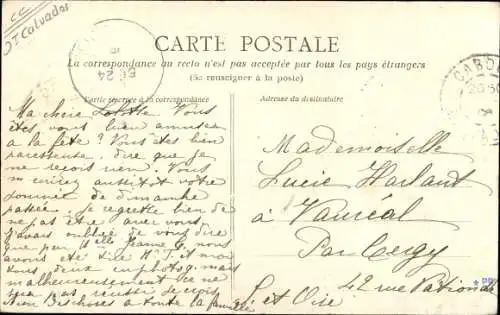 CC
DT Calvados
CARTE POSTALE
La correspondance au recto n'est pas acceptée par tous les pays étrangers
(Se renseigner à la poste)
Partie réservée à la correspondance
Adresse du destinataire
24
CABO
Ma chère Vous
êtes vous bien amusée
a la fête? Vous êtes bien
paresseuse, dire que je
ne reçois rien. Vous
aussitôt votre
journée de dimanche
passée. Je regrette bien de
ne pas etre avec vous
J'avais oublié de vous dire
que par Melle Jeanne G. nous
avons été et moi
tous deux mais
malheureusement
pas
Bien Des choses a toute la famille
Mademoiselle
Lucie Harlaut
à Vauréal
Par Cergy
42 rue Nationale
S. et Oise